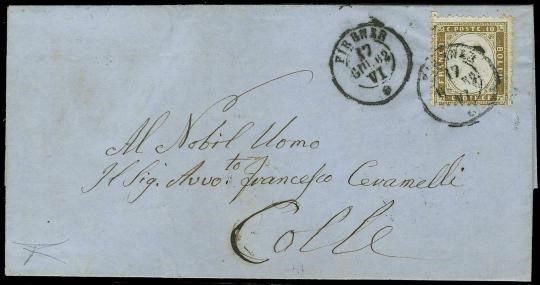 FIRENZE
17
GIU. 62
VI
C. POSTE 10
FRANCO
BOLLO
FIRENZE
17
Al Nobil Uomo
Il Sig. Avvo.to Francesco Ceramelli
Colle